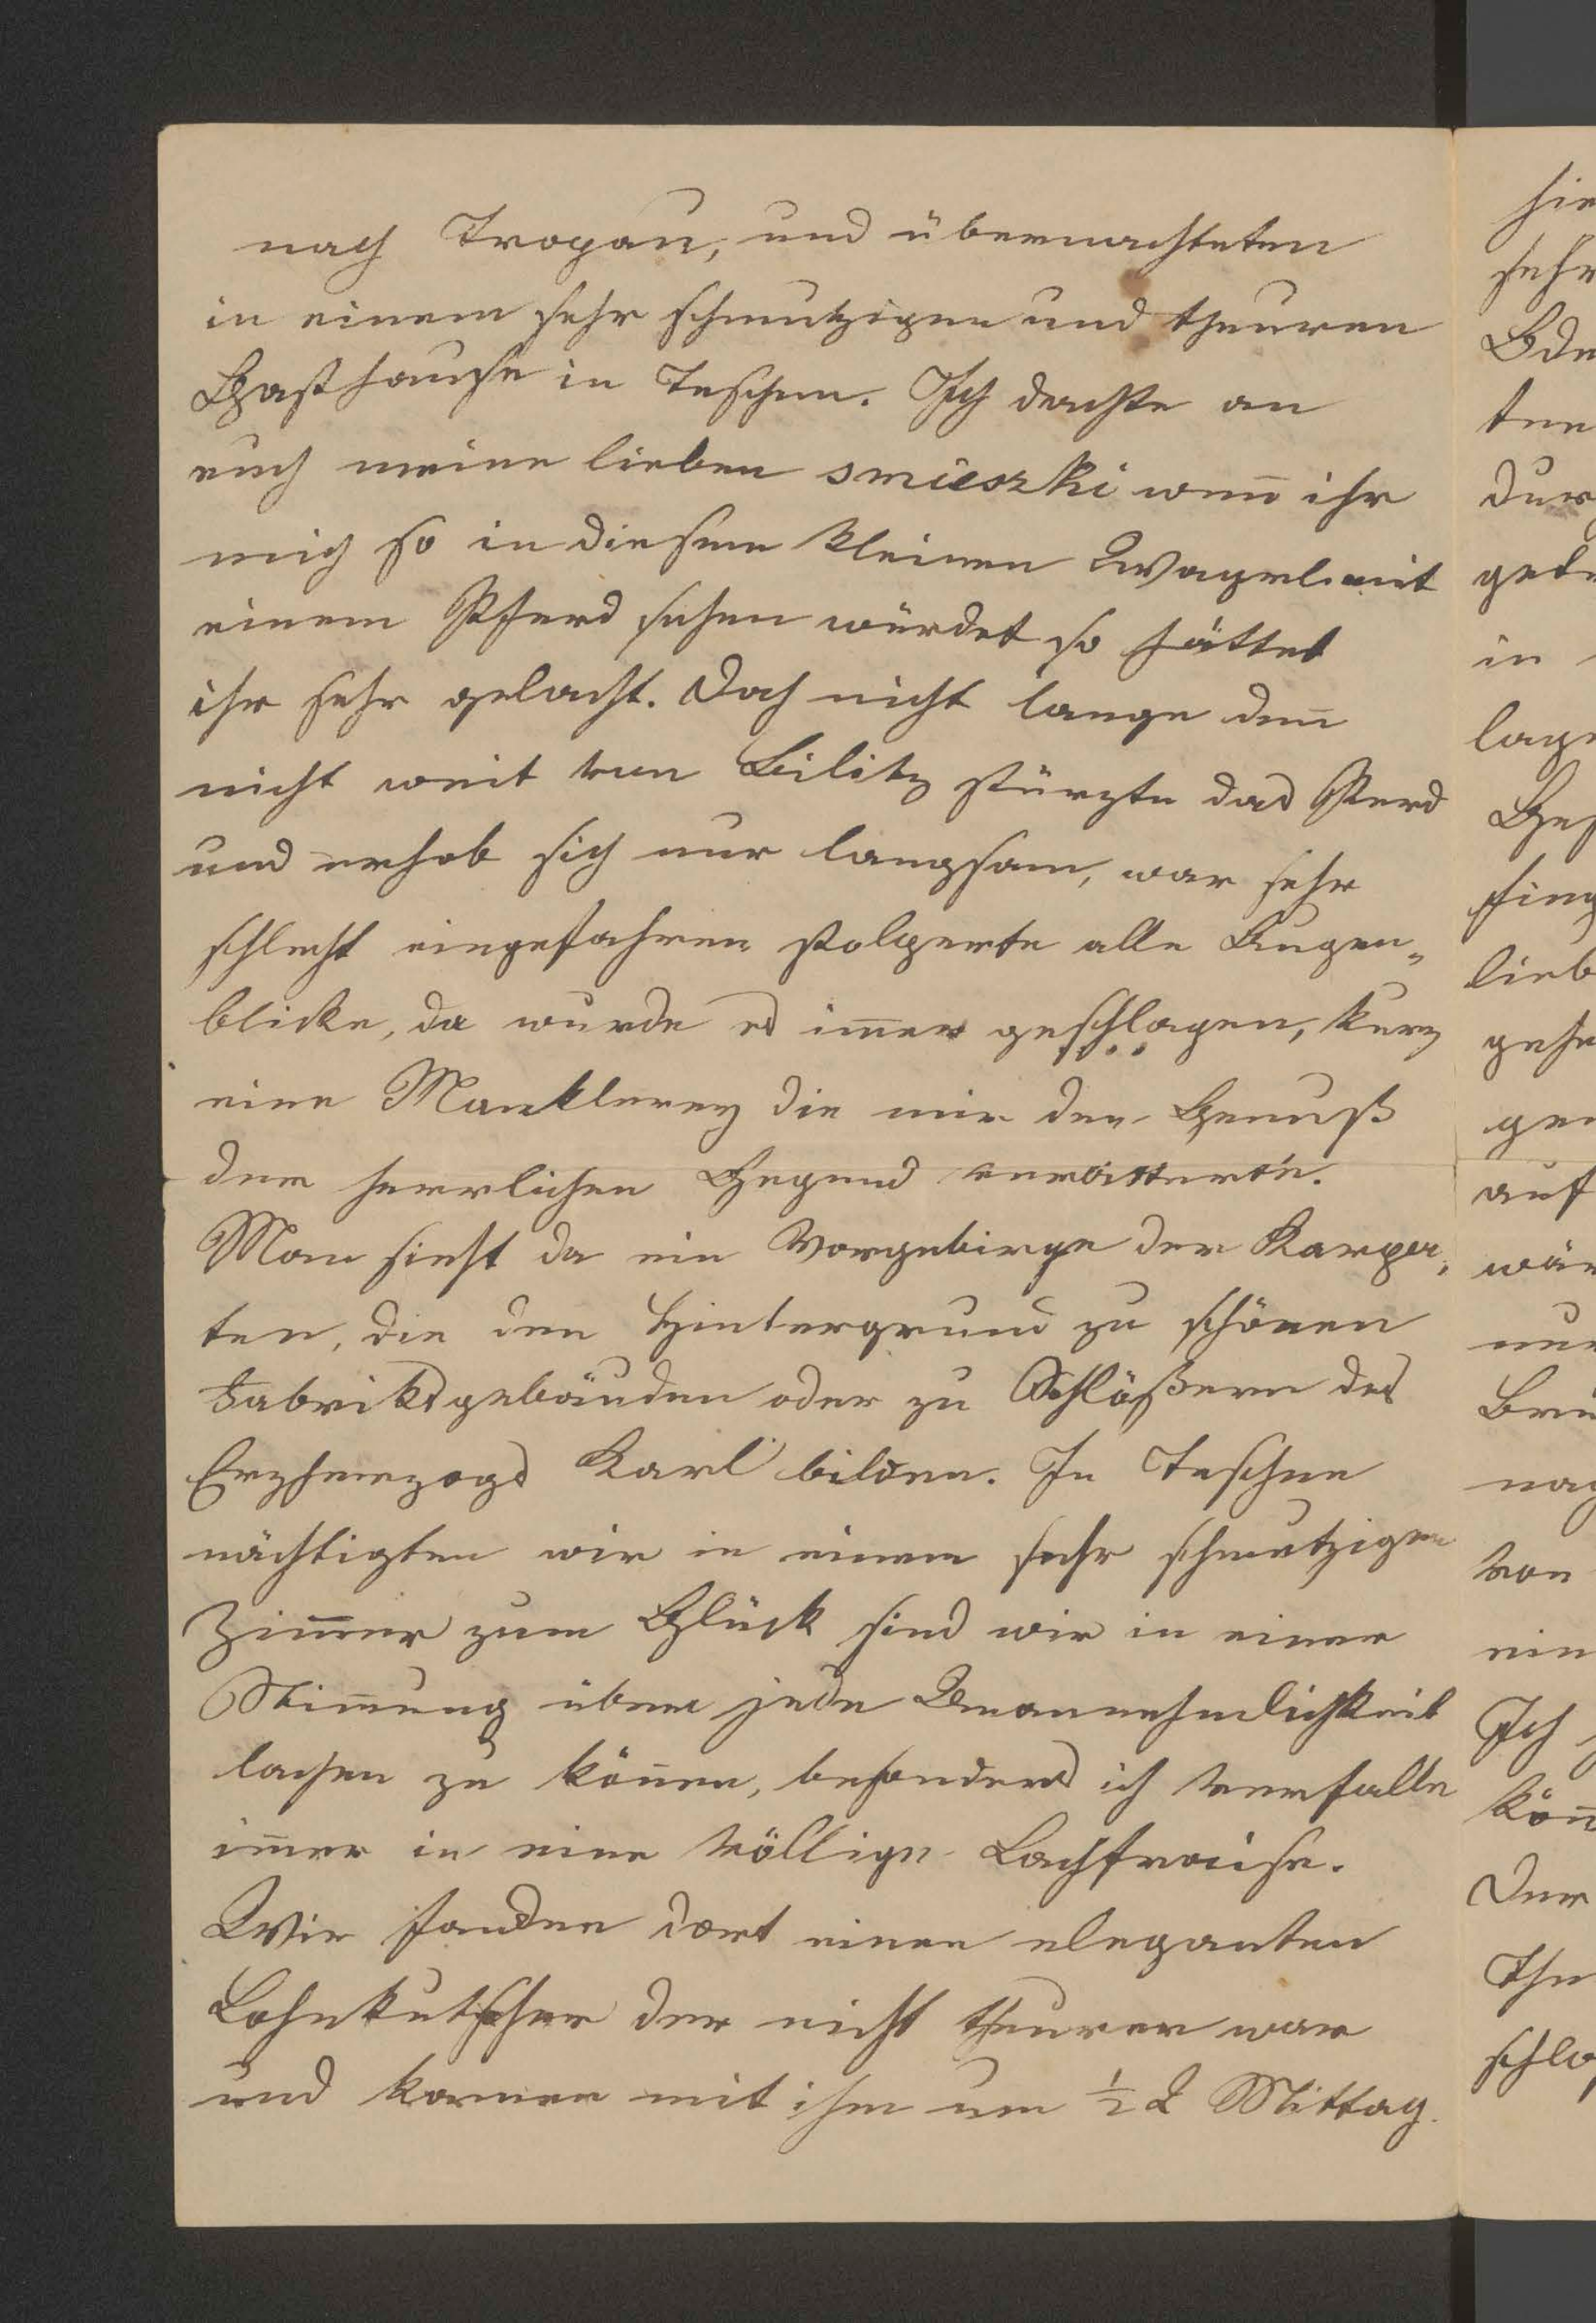 nach Tropau, und übernachteten
in einem sehr schmutzigen und theuren
Gasthause in Teschen. Ich dachte an
euch meine lieben smieszki weñ ihr
mich so in diesem kleinen Wagerl mit
einem Pferd sehen würdet so hättet
ihr sehr gelacht. Doch nicht lange deñ
nicht weit von Bilitz stürzte das Pferd
und erhob sich nur langsam, war sehr
schlecht eingefahren stolperte alle Augen„
blicke, da wurde es im̄er geschlagen, kurz
eine die mir den Genuß
der herrlichen Gegend verbitterte.
Man sieht da ein Vorgebirge der Karpa„
ten, die den Hintergrund zu schönen
Fabriksgebäuden oder zu Schlößern des
Erzherzogs Karl bilden. In Teschen
nächtigten wir in einem sehr schmutzigen
Zim̄er zum Glück sind wir in einer
Stim̄ung über jede Unannehmlichkeit
lachen zu köñen, besonders ich verfalle
im̄er in eine völlige Lachfraise.
Wir fanden dort einen eleganten
Lohnkutscher der nicht theurer war
und kamen mit ihm um ½ 2 Mittag
hie
sehr
Ode
ten
dur
gebr
in
lage
Ges
fing
lieb
gehe
gen
auf
wär
nur
Brü
nach
von
ein
Ich
köñ
Der
The
schla